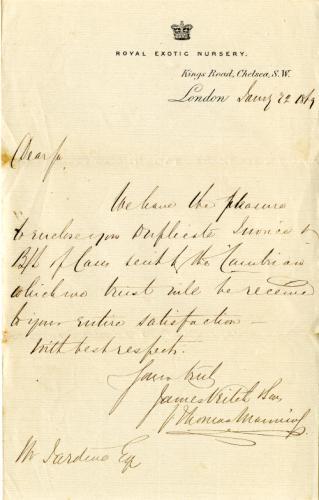 ROYAL EXOTIC NURSERY.
Kings Road, Chelsea, S.W.
London Jany 22 18
Dear Sir
We have the pleasure
to enclose you Duplicate Invoice &
B/L of Cases sent by the "Cambrian"
which we trust will be received
to your entire satisfaction –
With best respects.
Yours truly
James Veitch & Sons
p Thomas Manning
W Sardine Esq